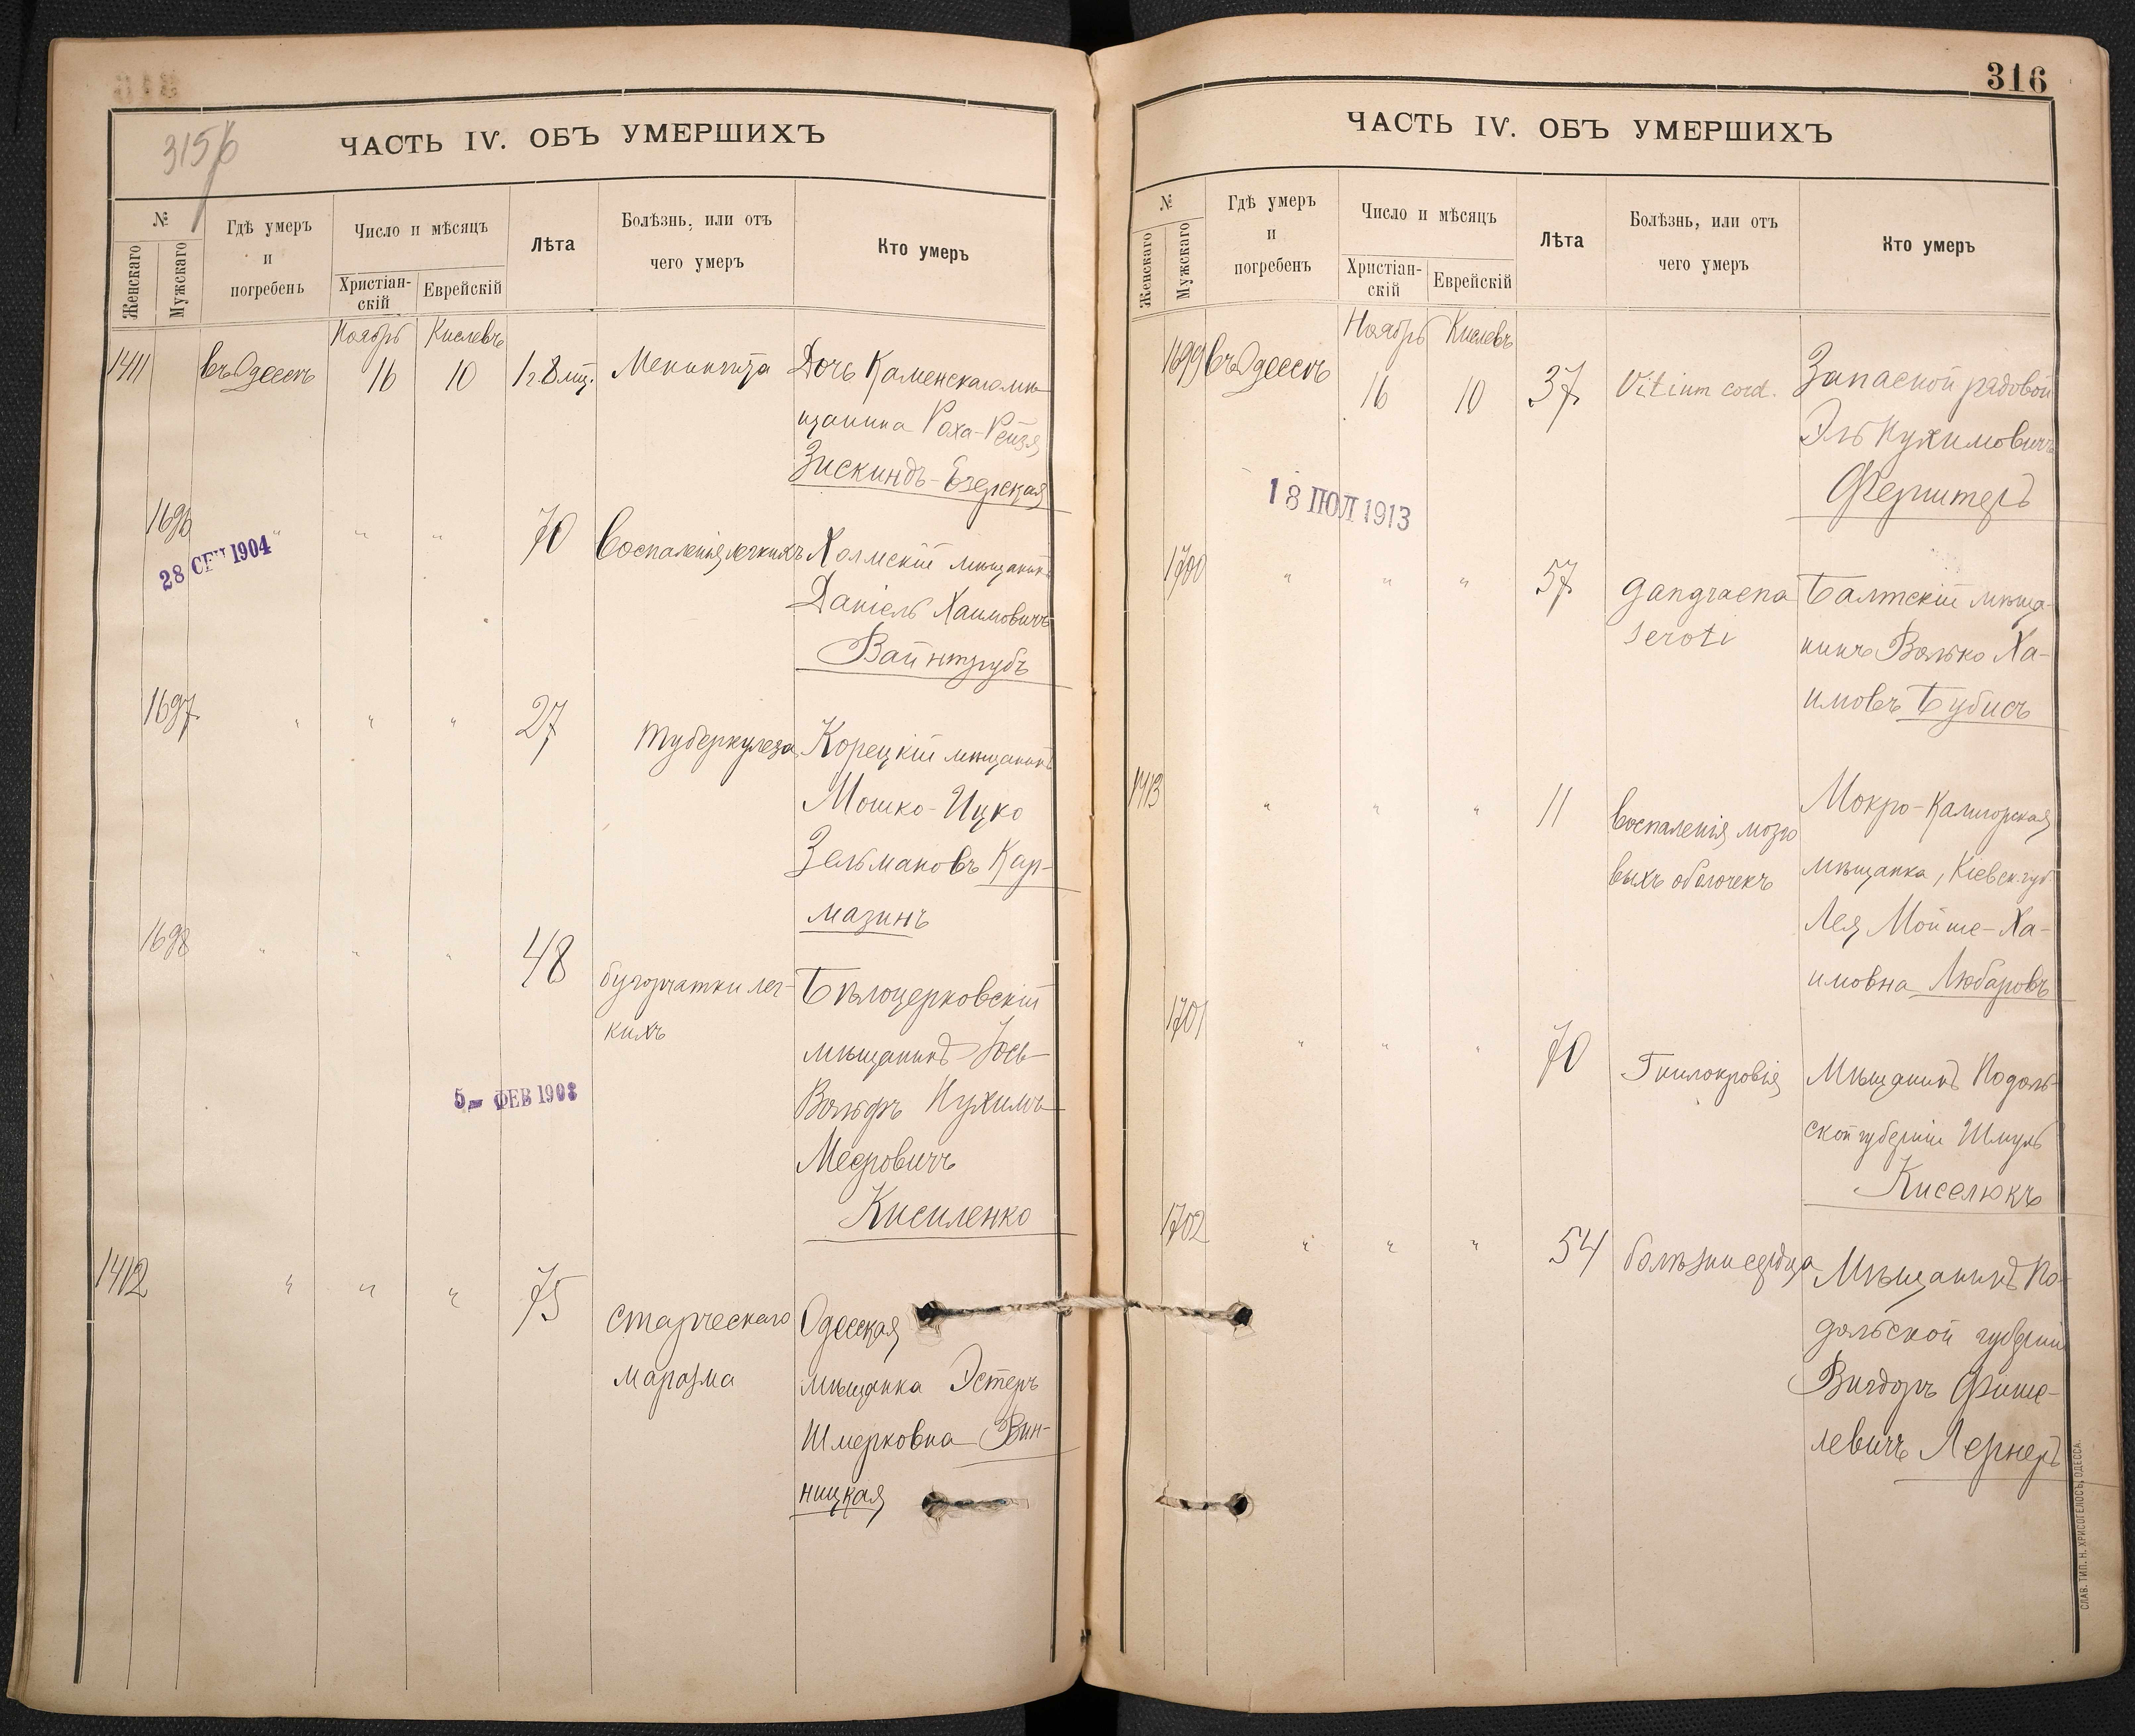 315 б
ЧАСТЬ IV. ОБЪ УМЕРШИХЪ
№
Женскаго
Мужскаго
Гдѣ умеръ
и
погребенъ
Число и мѣсяцъ
Христіан-
скій
Еврейскій
Лѣта
Болѣзнь, или отъ
чего умеръ
Кто умеръ
Ноябрь Кислевъ
1411 въ Одессѣ 16 10 1 г. 8 мц. Менингита Дочь Каменскаго мѣ-
щанина Роха-Рейзя
Зискиндъ-Езерская
1696 " " " 70 Воспаленія легкихъ Холмскій мѣщанинъ
28 СЕН 1904
Даніель Хаимовичъ
Вайнтрубъ
1697 " " " 27 Туберкулеза Корецкій мѣщанинъ
Мошко-Ицко
Зельмановъ Кар-
мазинъ
1698 " " " 48 бугорчатки лег-
кихъ
Бѣлоцерковскій
мѣщанинъ Іось-
5 - ФЕВ 1908
Вольфъ Нухимъ
Мееровичъ
Кисиленко
1412 " " " 75 старческаго
маразма
Одесская
мѣщанка Эстеръ
Шмерковна Вин-
ницкая
316
ЧАСТЬ IV. ОБЪ УМЕРШИХЪ
№
Женскаго
Мужскаго
Гдѣ умеръ
и
погребенъ
Число и мѣсяцъ
Христіан-
скій
Еврейскій
Лѣта
Болѣзнь, или отъ
чего умеръ
Кто умеръ
Ноябрь Кислевъ
1699 въ Одессѣ 16 10 37 Vitium cord. Запасной рядовой
Эль Нухимовичъ
Ферштеръ
18 ІЮЛ 1913
1700 " " " 57 gangraena
seroti
Балтскій мѣща-
нинъ Волько Ха-
имовъ Бубисъ
1413 " " " 11 воспаленія мозго
выхъ оболочекъ
Мокро-Калигорская
мѣщанка, Кіевск. губ.
Лея Мойше-Ха-
имовна Любаровъ
1701 " " " 70 Гнилокровія Мѣщанинъ Подоль-
ской губерніи Шмуль
Киселюкъ
1702 " " " 54 болѣзни сердца Мѣщанинъ По-
дольской губерніи
Вигдоръ Фише-
левичъ Лернеръ
СЛАВ. ТИП. Н. ХРИСОГЕЛОСЪ, ОДЕССА.